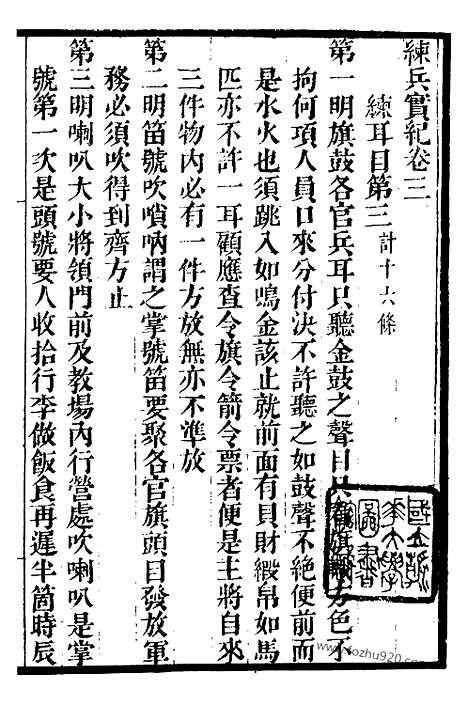 練兵實紀卷三
練耳目第三 計十六條
第一明旗鼓各官兵耳只聽金鼓之聲目只看旗幟方色不
拘何項人員口來分付決不許聽之如鼓聲不絕便前而
是水火也須跳入如鳴金該止就前面有貝財緞帛如馬
匹亦不許一耳顧應查令旗令箭令票者便是主將自來
三件物內必有一件方放無亦不準放
第二明笛號吹嗩吶謂之掌號笛要聚各官旗頭目發放軍
務必須吹得到齊方止
第三明喇叭大小將領門前及教場內行營處吹喇叭是掌
號第一次是頭號要人收拾行李做飯食再遲半箇時辰
www.fozhu920.com